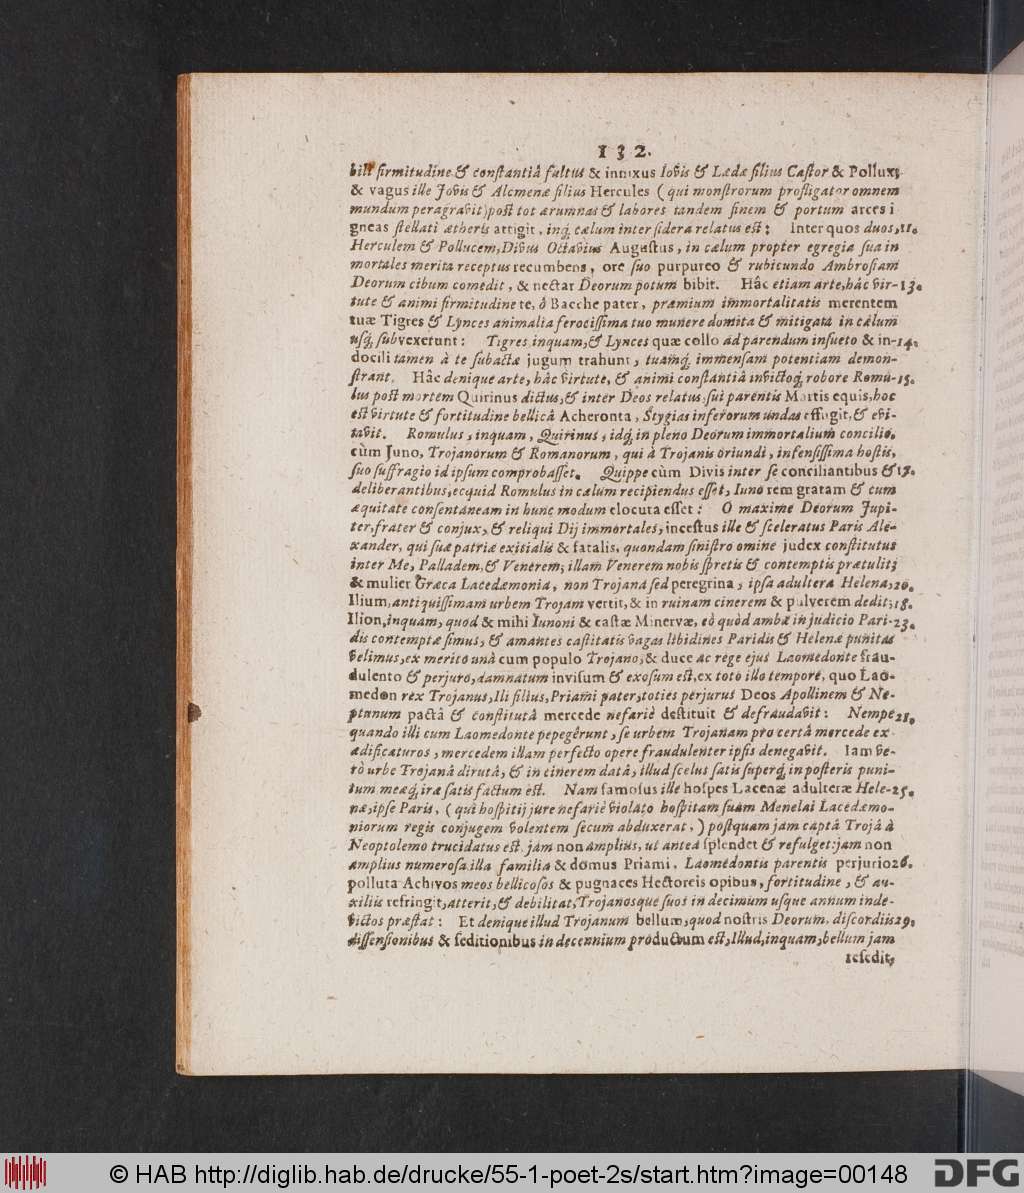 132.
bili firmitudine & constantiâ fultus & innixus Iovis & Ledæ filius Castor & Pollux;
& vagus ille Jovis & Alcmenæ filius Hercules ( qui monstrorum profligator omnem
mundum peragravit) post tot ærumnas & labores tandem finem & portum arces i
gneas stellati ætheris attigit, inq́; cælum inter sidera relatus est: Inter quos duos, 11.
Herculem & Pollucem, Divus Octavius Augustus, in cælum propter egregia sua in
mortales merita receptus recumbens, ore suo purpureo & rubicundo Ambrosiam
Deorum cibum comedit, & nectar Deorum potum bibit. Hâc etiam arte, hâc vir- 13.
tute & animi firmitudine te, ô Bacche pater, præmium immortalitatis merentem
tuæ Tigres & Lynces animalia ferocissima tuo munere domita & mitigata in cælum
usq́; subvexerunt: Tigres inquam, & Lynces quæ collo ad parendum insueto & in- 14.
docili tamen à te subactæ jugum trahunt, tuamq́; immensam potentiam demon-
strant. Hâc denique arte, hâc virtute, & animi constantiâ invictoq́; robore Romu- 15.
lus post mortem Quirinus dictus, & inter Deos relatus, sui parentis Martis equis, hoc
est virtute & fortitudine bellicâ Acheronta, Stygias inferorum undas effugit, & evi-
tavit. Romulus, inquam, Quirinus, idq́; in pleno Deorum immortalium concilio.
cùm Juno, Trojanorum & Romanorum, qui à Trojanis oriundi, infensissima hostis,
suo suffragio id ipsum comprobasset. Quippe cùm Divis inter se conciliantibus & 17.
deliberantibus, ecquid Romulus in cælum recipiendus esset, Iuno rem gratam & cum
æquitate consentaneam in hunc modum elocuta esset: O maxime Deorum Jupi-
ter, frater & conjux, & reliqui Dij immortales, incestus ille & sceleratus Paris Ale-
xander, qui suæ patriæ exitialis & fatalis, quondam sinistro omine judex constitutus
inter Me, Palladem, & Venerem; illam Venerem nobis spretis & contemptis prætulit;
& mulier Græca Lacedæmonia, non Trojana sed peregrina, ipsa adultera Helena, 20.
Ilium, antiquissimam urbem Trojam vertit, & in ruinam cinerem & pulverem dedit; 18.
Ilion, inquam, quod & mihi Iunoni & castæ Minervæ, eò quòd ambæ in judicio Pari- 23.
dis contemptæ simus, & amantes castitatis vagas libidines Paridis & Helenæ punitas
velimus, ex merito unà cum populo Trojano, & duce ac rege ejus Laomedonte frau-
dulento & perjuro, damnatum invisum & exosum est, ex toto illo tempore, quo Lao-
medon rex Trojanus, Ili filius, Priami pater, toties perjurus Deos Apollinem & Ne-
ptunum pactâ & constitutâ mercede nefariè destituit & defraudavit: Nempe 21.
quando illi cum Laomedonte pepegêrunt, se urbem Trojanam pro certâ mercede ex
ædificaturos, mercedem illam perfecto opere fraudulenter ipsis denegavit. Iam ve-
rò urbe Trojanâ dirutâ, & in cinerem datâ, illud scelus satis superq́; in posteris puni-
tum meæq́; iræ satis factum est. Nam famosus ille hospes Lacenæ adulteræ Hele- 25.
næ, ipse Paris, ( qui hospitij jure nefariè violato hospitam suam Menelai Lacedæmo-
niorum regis conjugem volentem secum abduxerat, ) postquam jam captâ Trojâ à
Neoptolemo trucidatus est, jam non amplius, ut anteà splendet & refulget: jam non
amplius numerosa illa familia & domus Priami, Laomedontis parentis perjurio 26.
polluta Achivos meos bellicosos & pugnaces Hectoreis opibus, fortitudine, & au-
xiliis refringit, atterit, & debilitat, Trojanosque suos in decimum usque annum inde-
victos præstat: Et denique illud Trojanum bellum, quod nostris Deorum, discordiis 29.
dissensionibus & seditionibus in decennium productum est, Illud, inquam, bellum jam
resedit,
© HAB http://diglib.hab.de/drucke/55-1-poet-2s/start.htm?image=00148
DFG